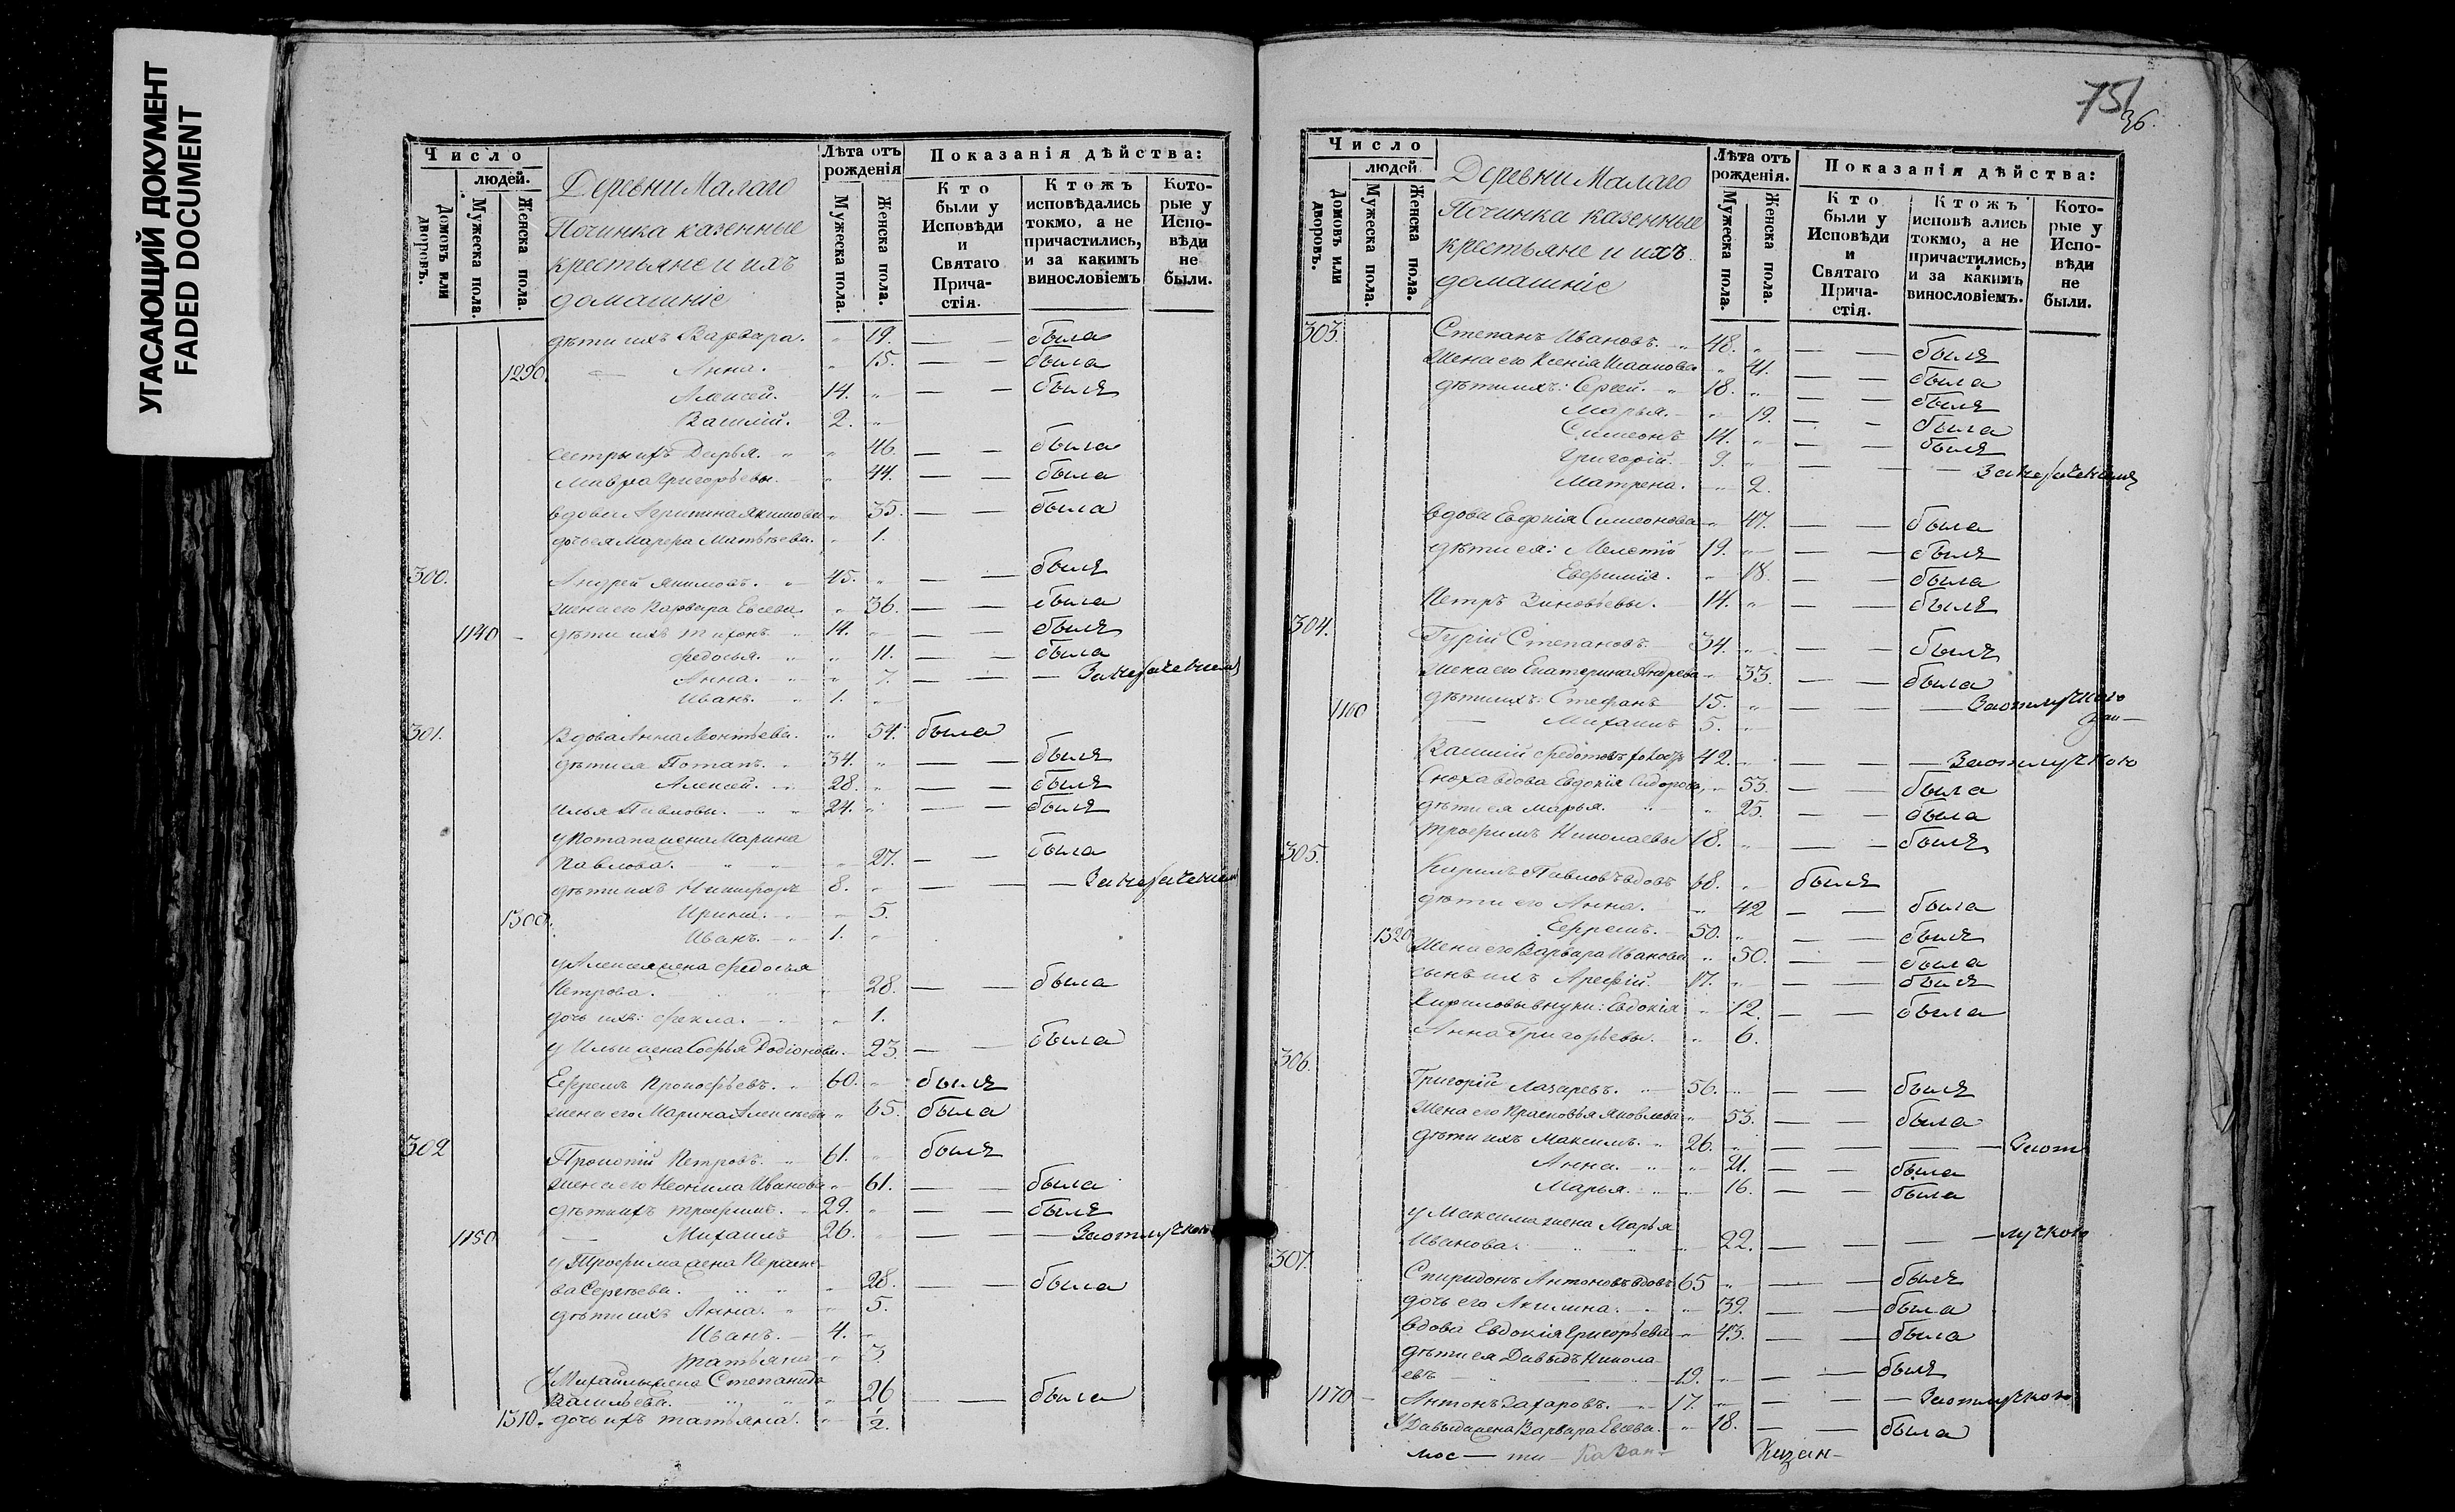 УГАСАЮЩИЙ ДОКУМЕНТ
FADED DOCUMENT
Число
людей.
Домовъ или дворовъ.
Мужеска пола.
Женска пола.
Деревни Малаго
Починка казенные
крестьяне и ихъ
домашніе
Лѣта отъ рожденія
Мужеска пола.
Женска пола.
Показанія дѣйства:
Кто были у Исповѣди и Святаго Причастія.
Ктожъ исповѣдались токмо, а не причастились, и за какимъ винословіемъ
Которые у Исповѣди не были.
дѣти ихъ Варвара. " 19. — — была
1290. — Анна. " 15. — — была
Алексей. 14. " — — былъ
Василій. 2. "
сестры ихъ Дарья. " 46. — — была
Мавра Григорьевы. " 44. — — была
вдова Акимова " 35. — — была
дочь ея Марфа Матвѣева. " 1.
300. Андрей Акимовъ. 45. " — — былъ
жена его Варвара Евсева. " 36. — — была
1140 — дѣти ихъ Тихонъ. 14. " — — былъ
Федосья. " 11. — — была
Анна. " 7. — — —
Иванъ. 1. "
301. Вдова Анна Леонтьева. " 54. была
дѣти ея Потапъ. 34. " — — былъ
Алексей. 28. " — — былъ
Илья Павловы. 24. " — — былъ
у Потапа жена Марина
Павлова. " 27. — — была
дѣти ихъ Никифоръ 8. " — — —
1300. Ирина. " 5.
Иванъ. 1. "
у Алексея жена Федосья
Петрова. " 28. — — была
дочь ихъ: Фекла. " 1.
у Ильи жена Софья Родіонова. 23. — — была
Ефремъ Прокофьевъ. 60. " былъ
жена его Марина Алексеева " 65. была
302 Прокопій Петровъ. 61. " былъ
жена его Неонила Иванова " 61. — — была
дѣти ихъ Трофимъ. 29. " — — былъ
1150 — Михаилъ 26. " — — — За отлучкою
у Трофима жена Параске-
ва Сергѣева. " 28. — — была
дѣти ихъ Анна. " 5.
Иванъ. 4. "
Татьяна " 3.
У Михайлы жена Степанида
Васильева. " 26 — — была
1310. дочь ихъ Татьяна. " ½.
75
36.
Число
людей
Домовъ или дворовъ.
Мужеска пола.
Женска пола.
Деревни Малаго
Починка казенные
крестьяне и ихъ
домашніе
Лѣта отъ рожденія.
Мужеска пола.
Женска пола.
Показанія дѣйства:
Кто были у Исповѣди и Святаго Причастія.
Ктожъ исповѣ ались токмо, а не причастились, и за какимъ винословіемъ.
Которые у Исповѣди не были.
303. Степанъ Ивановъ. 48. " — — былъ
жена его Ксенія " 41. — — была
дѣти ихъ: Сергей. 18. " — — былъ
Марья. " 19. — — была
Симеонъ 14. " — — былъ
Григорій. 9. " — — —
Матрена. " 2.
вдова Евдокія Симеонова " 47. — — была
дѣти ея: Мелетій 19. " — — былъ
Евфимія. " 18. — — была
Петръ Зиновьевы. 14. " — — былъ
304. Гурій Степановъ. 34. " — — былъ
жена его Екатерина Андреева " 33. — — была
дѣти ихъ: Стефанъ 15. " — — — За отлучкою
1160 — Михаилъ 5. "
Василій Федотовъ 42. " — — — За отлучкою
Сноха вдова Евдокія Сидорова, " 53. — — была
дѣти ея Марья. " 25. — — была
Трофимъ Николаевы 18. " — — былъ
305. Кирилъ Павловъ вдовъ 68. " былъ
дѣти его Анна. " 42 — — была
Ефремъ. 50. " — — былъ
1320 жена его Варвара Иванова " 50. — — была
сынъ ихъ Арефій. 17. " — — былъ
Кириловы внуки: Евдокія " 12. — — была
Анна Григорьевы. " 6.
306. Григорій Лазаревъ. 56. " — — былъ
жена его Прасковья Яковлева " 53. — — была
дѣти ихъ Максимъ. 26. " — — — За от
Анна. " 21. — — была
Марья. " 16. — — была
у Максима жена Марья
Иванова. " 22. — — — лучкою
307. Спиридонъ Антоновъ вдовъ 65 " — — былъ
дочь его Акилина. " 39. — — была
вдова Евдокія Григорьева " 43. — — была
дѣти ея Давыдъ Никола-
евъ 19. " — — былъ
1170 — Антонъ Захаровъ. 17. " — — — За отлучкою
У Давыда жена Варвара Евсева. " 18. — — была
мос — ти — Казан-